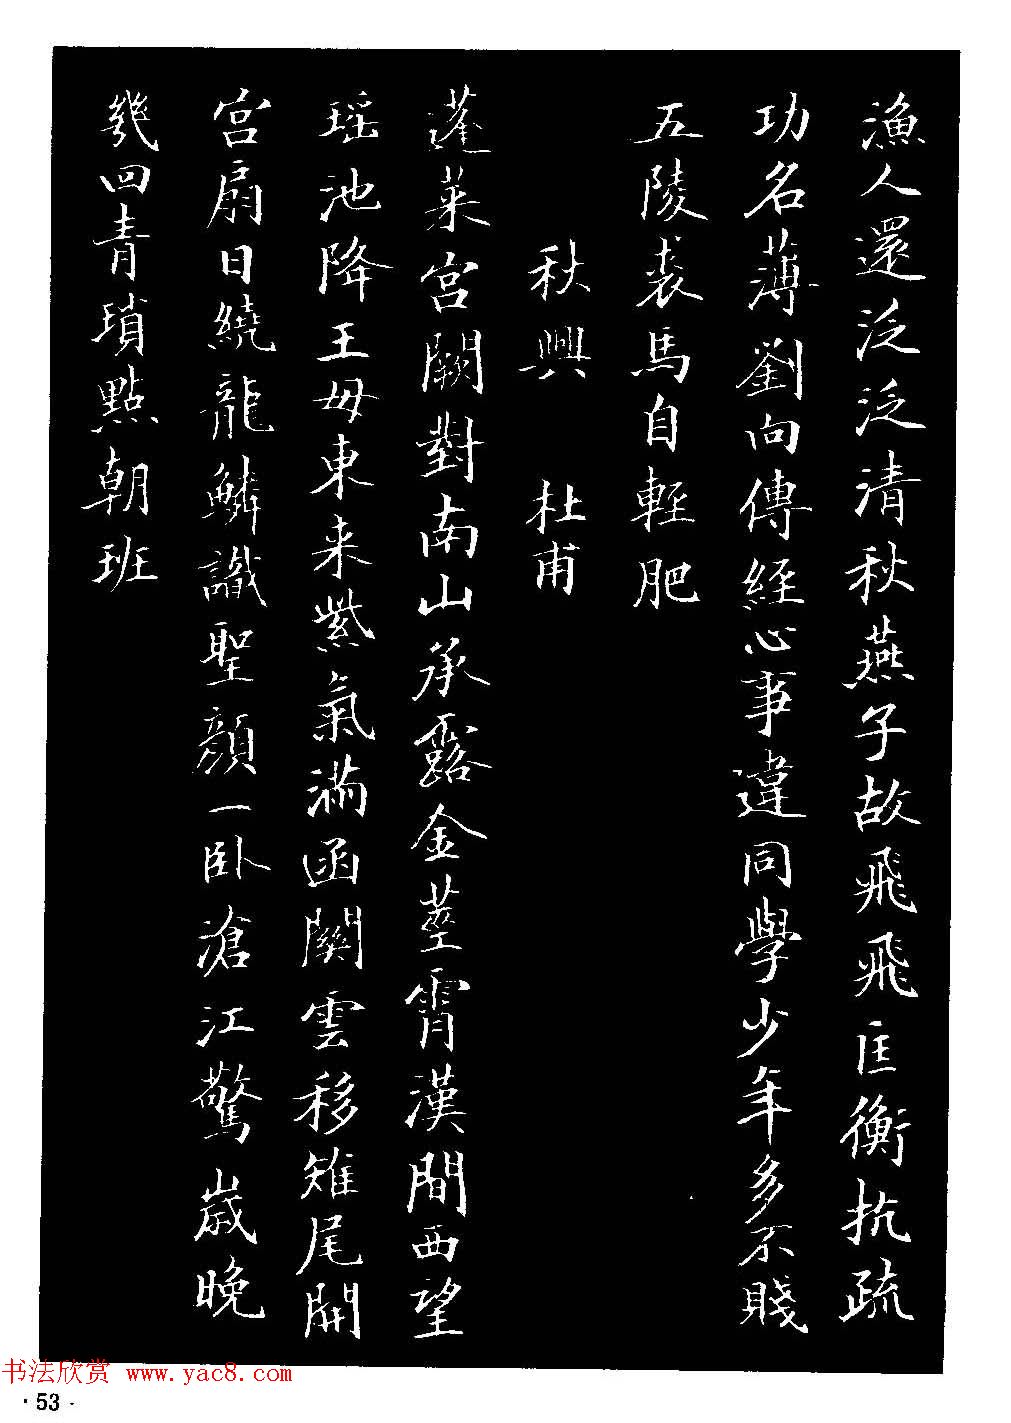 漁人還泛泛清秋燕子故飛飛匡衡抗疏
功名薄劉向傳經心事違同學少年多不賤
五陵裘馬自輕肥
秋興 杜甫
蓬萊宮闕對南山承露金莖霄漢間西望
瑶池降王母東来紫氣滿函關雲移雉尾開
宮扇日繞龍鱗識聖顏一卧滄江驚歲晚
幾回青瑣點朝班
书法欣赏 www.yac8.com
·53·